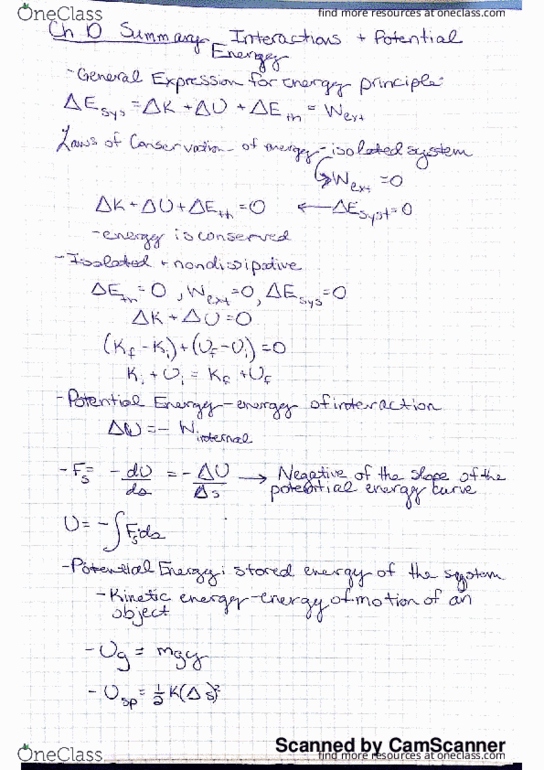 OneClass
find more resources at oneclass.com
Ch 10 Summary Interactions + Potential
Energy
- General Expression for energy principle:
ΔE sys = ΔK + ΔU + ΔE th = W ext
Laws of Conservation of energy - isolated system
→ W ext = 0
ΔK + ΔU + ΔE th = 0 ← ΔE syst = 0
- energy is conserved
- Isolated + nondissipative
ΔE th = 0, W ext = 0, ΔE sys = 0
ΔK + ΔU = 0
(K f - K i) + (U f - U i) = 0
K i + U i = K f + U f
- Potential Energy - energy of interaction
ΔU = - W internal
- F s = - dU/ds = - ΔU/Δs → Negative of the slope of the
potential energy curve
U = - ∫ F s ds
- Potential Energy: stored energy of the system
- Kinetic energy - energy of motion of an
object
- U g = mgy
- U sp = 1/2 K(Δs)²
Scanned by CamScanner
OneClass
find more resources at oneclass.com